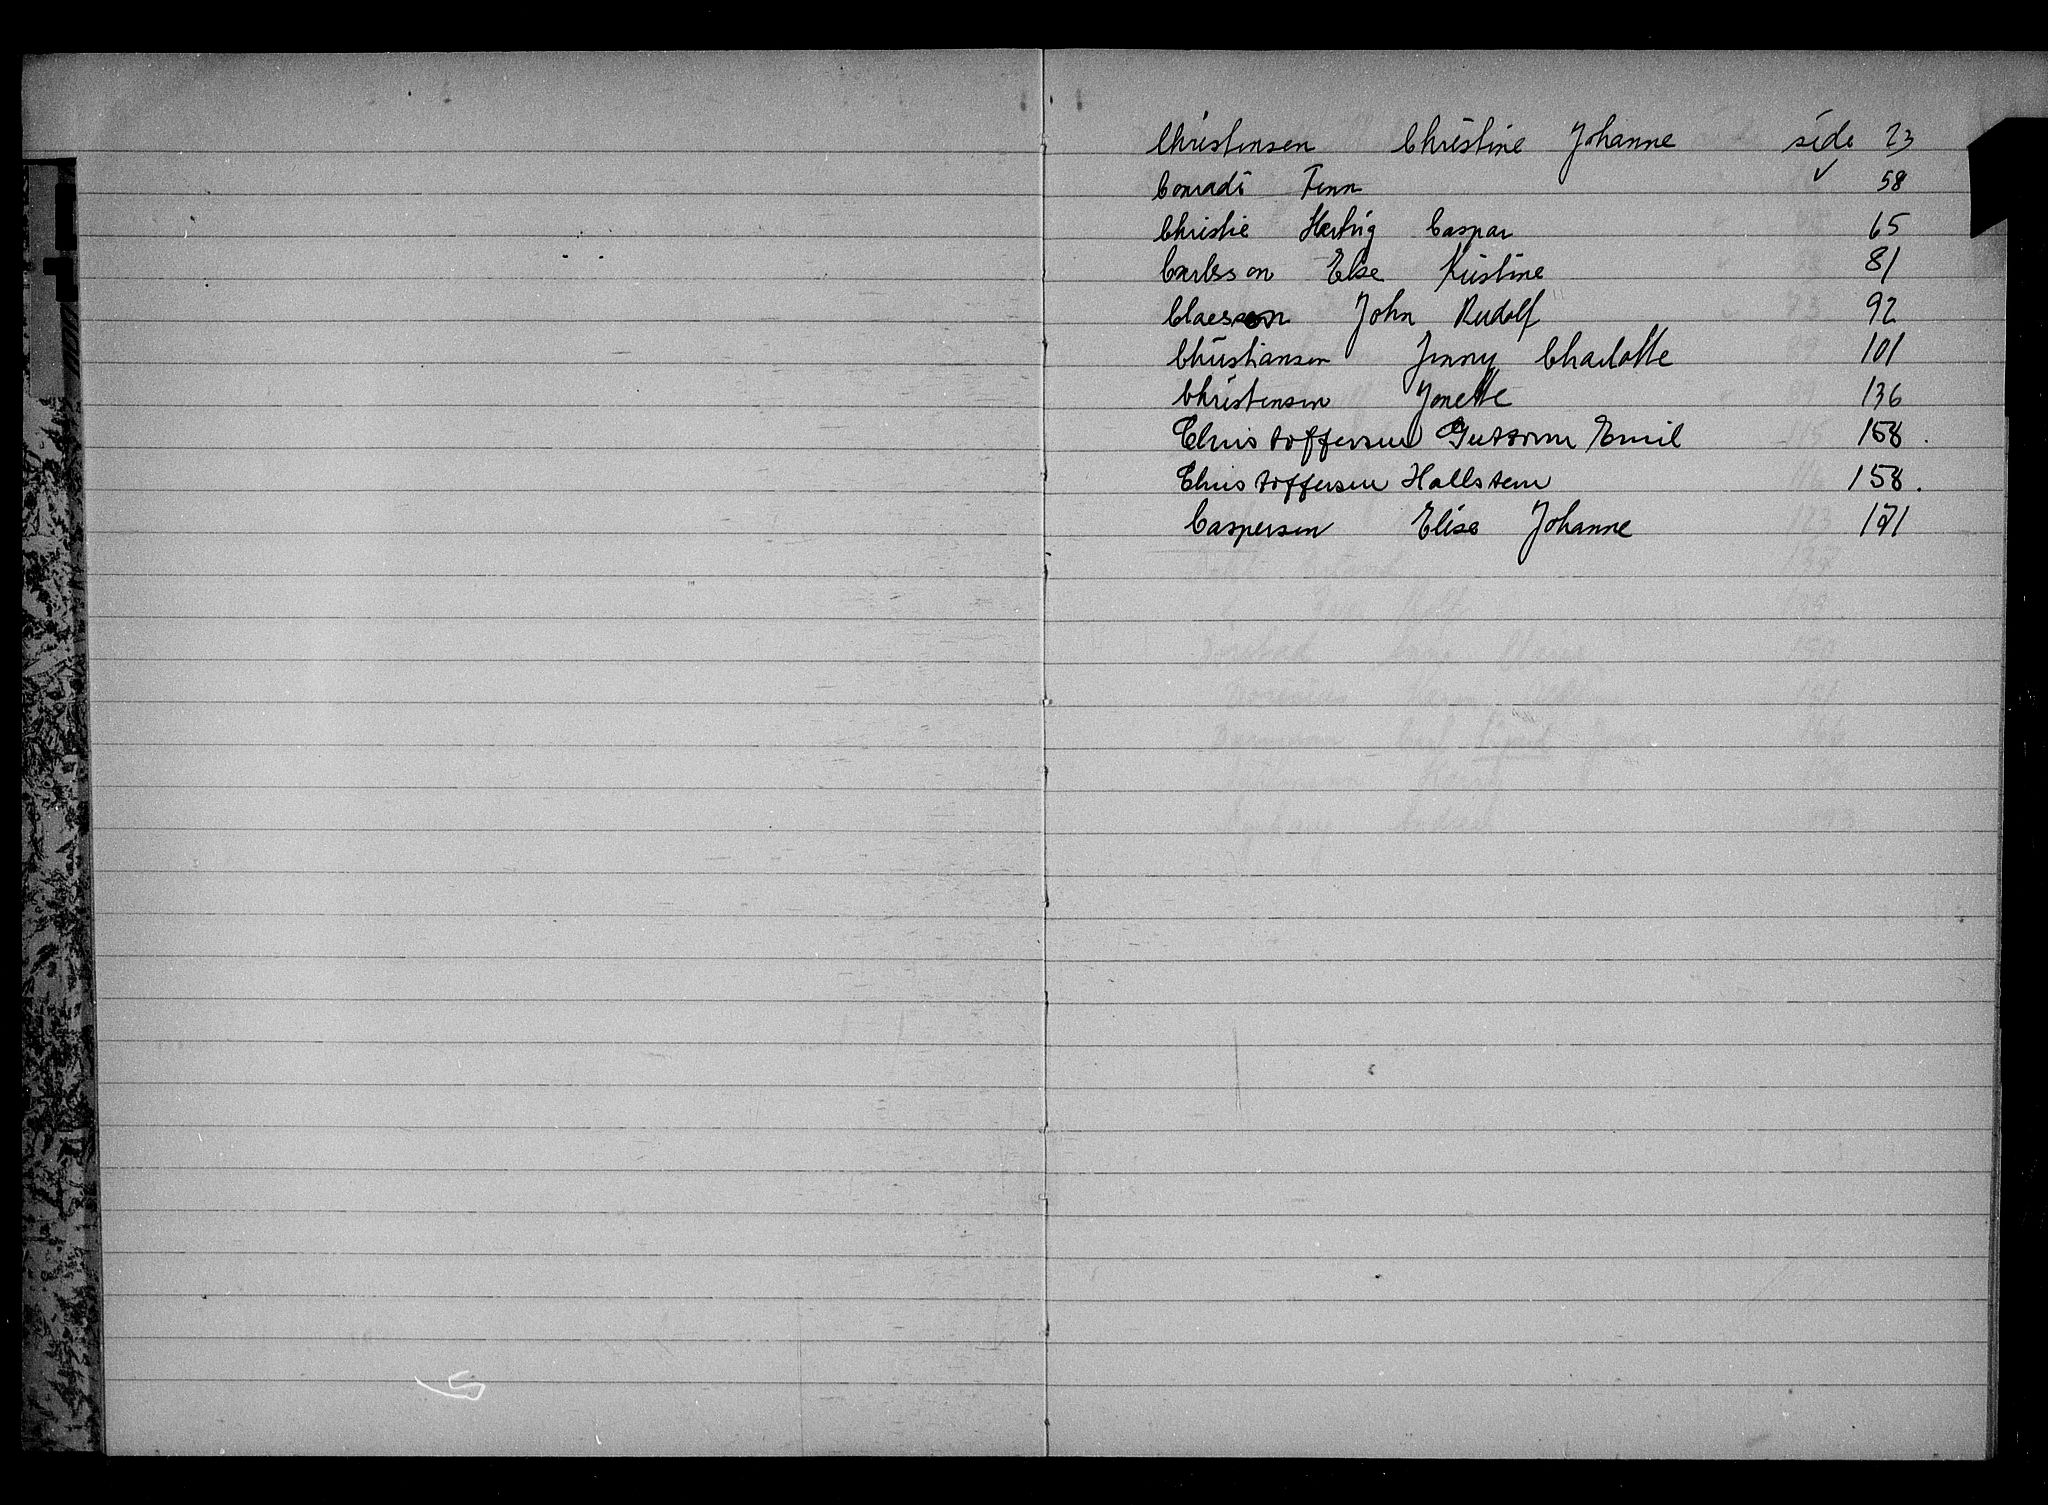 Christensen Christine Johanne side 23
Conradi Finn " 58
Christie Hartvig Caspar 65
Carlsson Else Kristine 81
Claesson John Rudolf 92
Christiansen Jenny Charlotte 101
Christensen Jonette 136
Christoffersen Guttorm Emil 158.
Christoffersen Hallstein 158.
Caspersen Elise Johanne 171